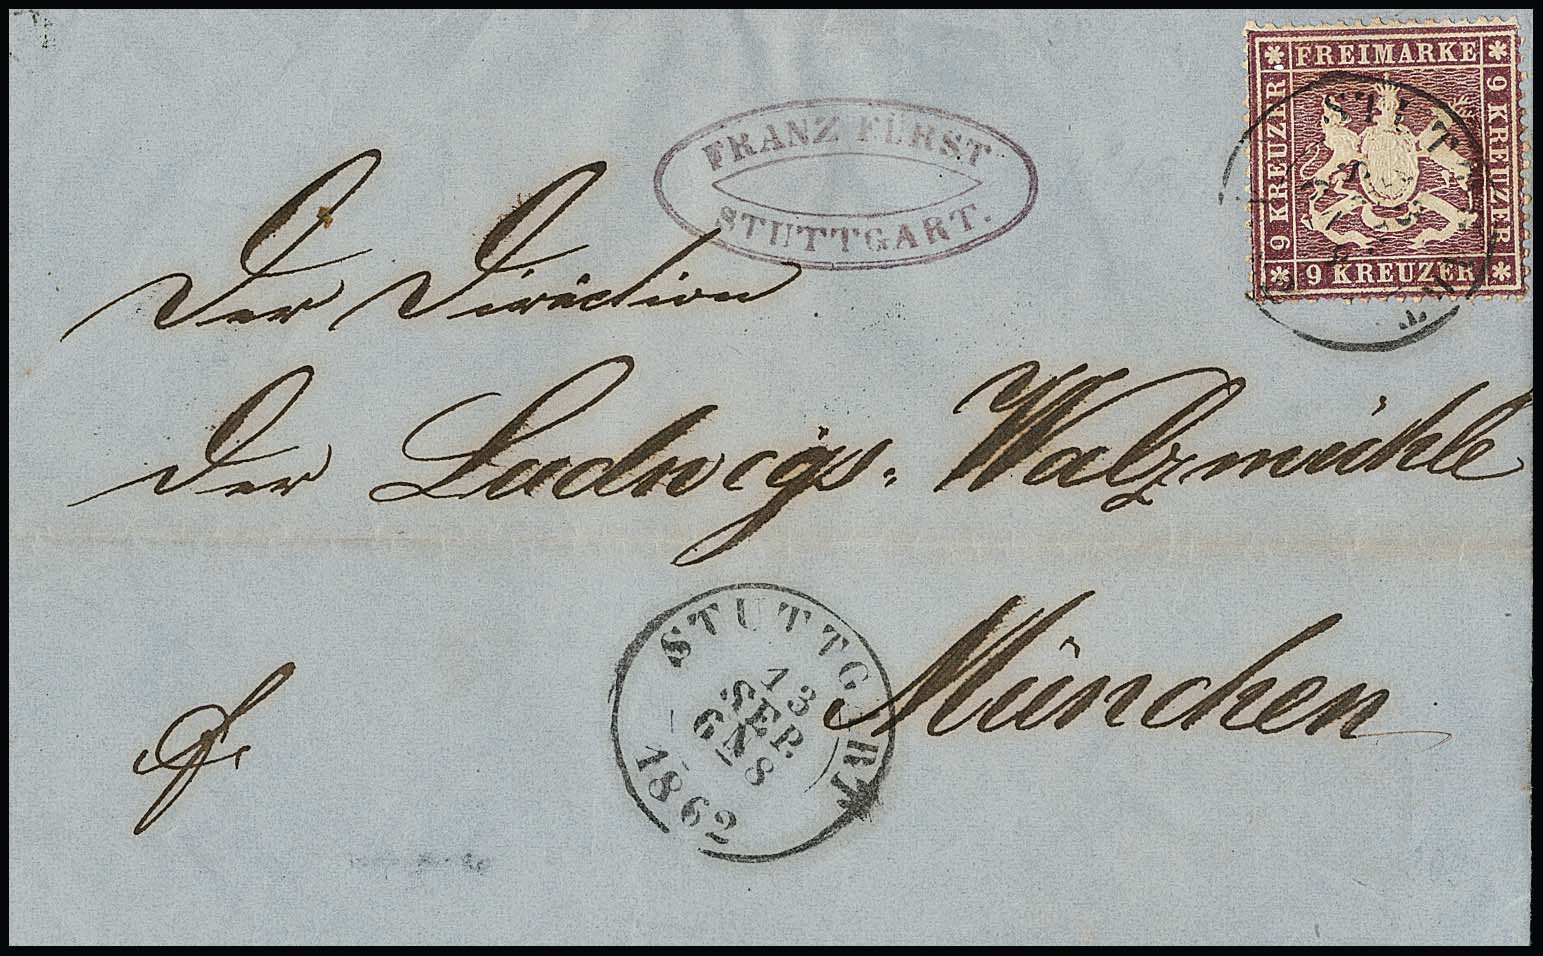 FREIMARKE
9 KREUZER
9 KREUZER
9 KREUZER
FRANZ FÜRST
STUTTGART.
Der Direction
der Ludwigs-Walzmühle
München
STUTTGART
13
SEP.
6 N 8
1862